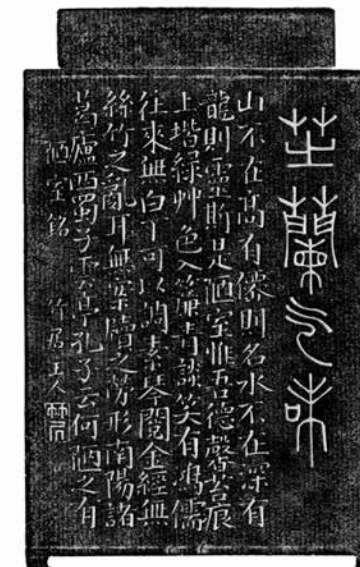 芝蘭气味
山不在髙有僊則名水不在深有
龍則靈斯是陋室惟吾德馨苔痕
上堦綠艸色入簾青談笑有鴻儒
往來無白丁可以調素琴閱金經無
絲竹之亂耳無案牘之勞形南陽諸
葛廬西蜀子雲亭孔子云何陋之有
陋室銘 竹居主人